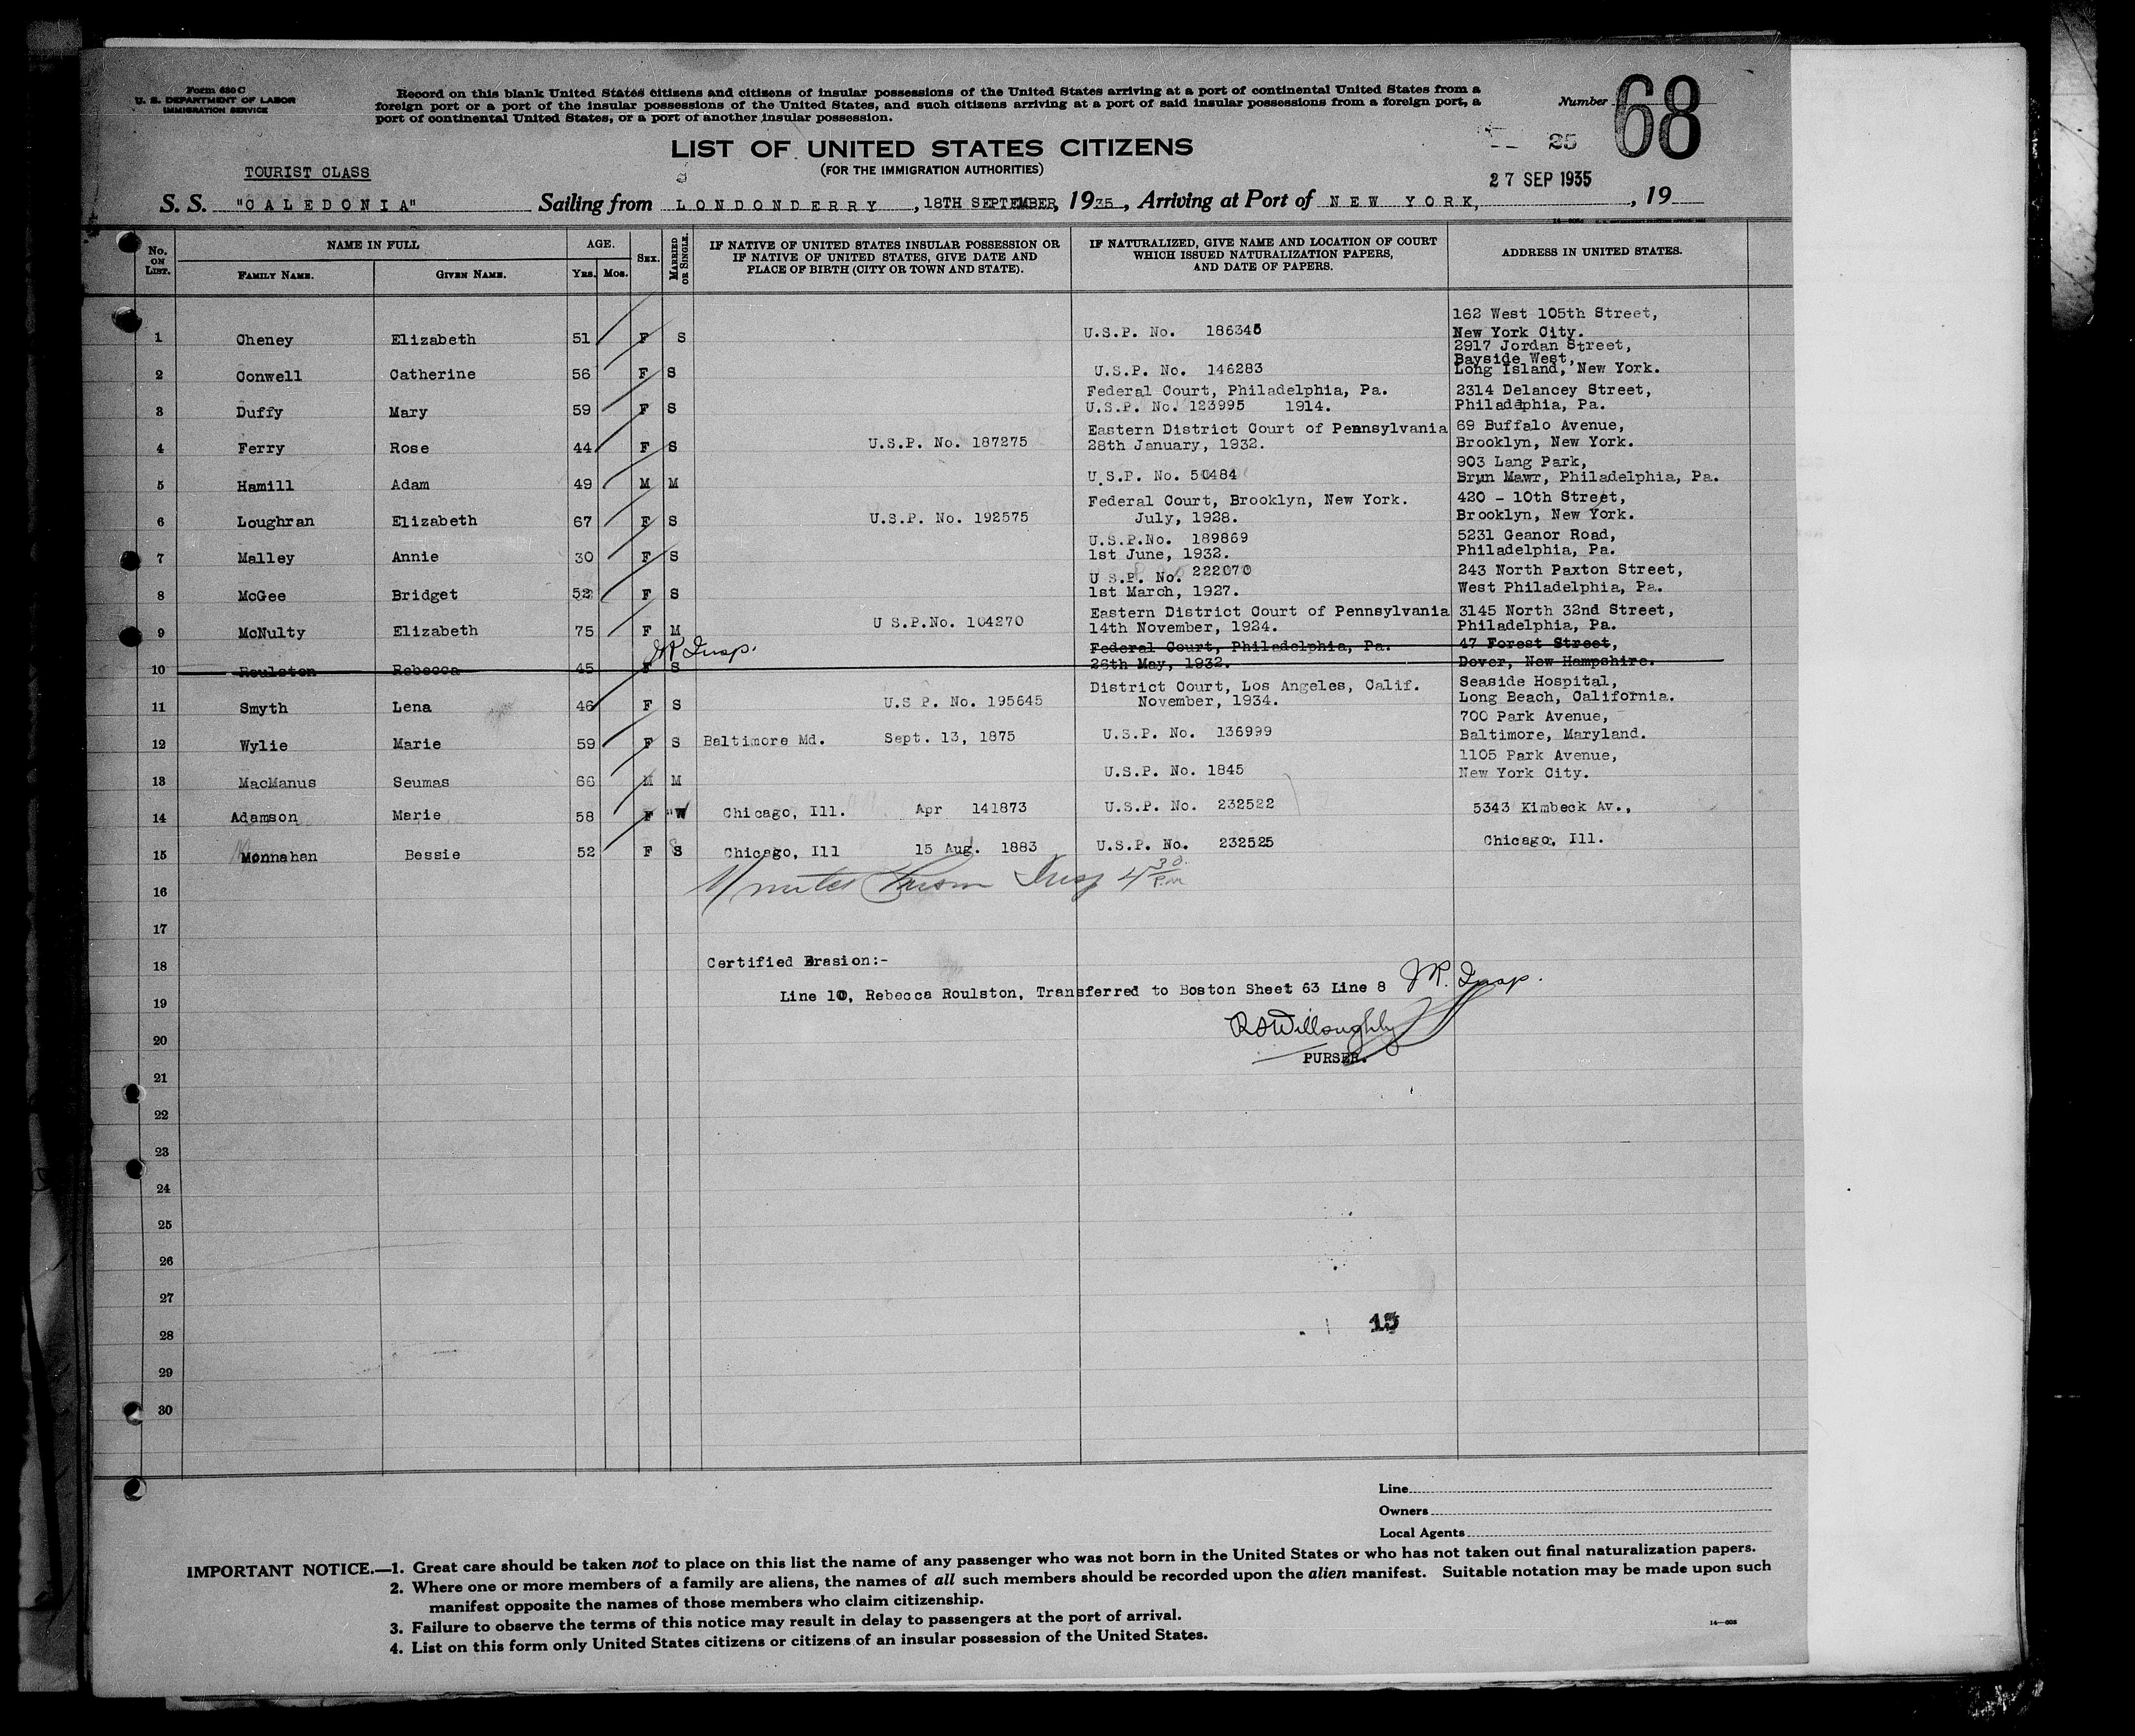 Form 630 C
U. S. DEPARTMENT OF LABOR
IMMIGRATION SERVICE
Record on this blank United States citizens and citizens of insular possessions of the United States arriving at a port of continental United States from a
foreign port or a port of the insular possessions of the United States, and such citizens arriving at a port of said insular possessions from a foreign port, a
port of continental United States, or a port of another insular possession.
Number 68
25
LIST OF UNITED STATES CITIZENS
(FOR THE IMMIGRATION AUTHORITIES)
TOURIST CLASS
27 SEP 1935
S. S. "CALEDONIA" Sailing from LONDONDERRY, 18TH SEPTEMBER, 1935, Arriving at Port of NEW YORK, , 19
No. ON LIST. NAME IN FULL AGE. SEX. MARRIED OR SINGLE. IF NATIVE OF UNITED STATES INSULAR POSSESSION OR IF NATIVE OF UNITED STATES, GIVE DATE AND PLACE OF BIRTH (CITY OR TOWN AND STATE). IF NATURALIZED, GIVE NAME AND LOCATION OF COURT WHICH ISSUED NATURALIZATION PAPERS, AND DATE OF PAPERS. ADDRESS IN UNITED STATES.
FAMILY NAME. GIVEN NAME. YRS. MOS.
162 West 105th Street,
1 Cheney Elizabeth 51 F S U.S.P. No. 186345 New York City.
2917 Jordan Street,
Bayside West,
2 Conwell Catherine 56 F S U.S.P. No. 146283 Long Island, New York.
Federal Court, Philadelphia, Pa. 2314 Delancey Street,
3 Duffy Mary 59 F S U.S.P. No. 123995 1914. Philadelphia, Pa.
Eastern District Court of Pennsylvania 69 Buffalo Avenue,
4 Ferry Rose 44 F S U.S.P. No. 187275 28th January, 1932. Brooklyn, New York.
903 Lang Park,
5 Hamill Adam 49 M M U.S.P. No. 50484 Bryn Mawr, Philadelphia, Pa.
Federal Court, Brooklyn, New York. 420 - 10th Street,
6 Loughran Elizabeth 67 F S U.S.P. No. 192575 July, 1928. Brooklyn, New York.
U.S.P.No. 189869 5231 Geanor Road,
7 Malley Annie 30 F S 1st June, 1932. Philadelphia, Pa.
U S.P. No. 222070 243 North Paxton Street,
8 McGee Bridget 52 F S 1st March, 1927. West Philadelphia, Pa.
Eastern District Court of Pennsylvania 3145 North 32nd Street,
9 McNulty Elizabeth 75 F M U S.P.No. 104270 14th November, 1924. Philadelphia, Pa.
JR Insp. Federal Court, Philadelphia, Pa. 47 Forest Street,
10 Roulston Rebecca 45 F S 26th May, 1932. Dover, New Hampshire.
District Court, Los Angeles, Calif. Seaside Hospital,
11 Smyth Lena 46 F S U.S P. No. 195645 November, 1934. Long Beach, California.
700 Park Avenue,
12 Wylie Marie 59 F S Baltimore Md. Sept. 13, 1875 U.S.P. No. 136999 Baltimore, Maryland.
1105 Park Avenue,
13 MacManus Seumas 66 M M U.S.P. No. 1845 New York City.
14 Adamson Marie 58 F W Chicago, Ill. Apr 141873 U.S.P. No. 232522 5343 Kimbeck Av.,
15 Monnahan Bessie 52 F S Chicago, Ill 15 Aug. 1883 U.S.P. No. 232525 Chicago, Ill.
16 Insp 4 30 P.M
17
18 Certified Erasion:-
19 Line 10, Rebecca Roulston, Transferred to Boston Sheet 63 Line 8 JR. Insp.
20 RSWilloughby
PURSER.
21
22
23
24
25
26
27
28 15
29
30
Line
Owners
Local Agents
IMPORTANT NOTICE.—1. Great care should be taken not to place on this list the name of any passenger who was not born in the United States or who has not taken out final naturalization papers.
2. Where one or more members of a family are aliens, the names of all such members should be recorded upon the alien manifest. Suitable notation may be made upon such
manifest opposite the names of those members who claim citizenship.
3. Failure to observe the terms of this notice may result in delay to passengers at the port of arrival.
4. List on this form only United States citizens or citizens of an insular possession of the United States.